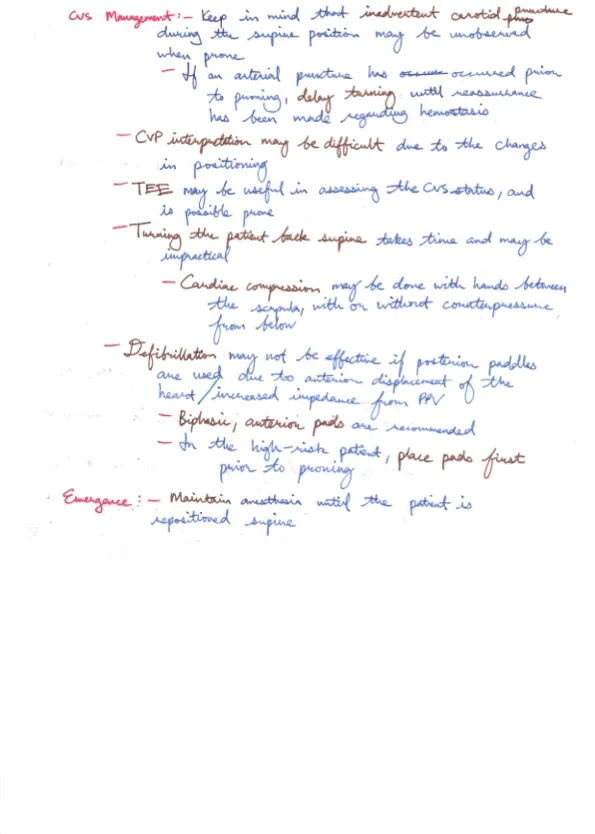 CVS Management:- Keep in mind that inadvertent carotid puncture
during the supine position may be unobserved
when prone
- If an arterial puncture has occurred prior
to proning, delay turning until reassurance
has been made regarding hemostasis
- CVP interpretation may be difficult due to the changes
in positioning
- TEE may be useful in assessing the CVS status, and
is possible prone
- Turning the patient back supine takes time and may be
impractical
- Cardiac compression may be done with hands between
the scapula, with or without counterpressure
from below
- Defibrillation may not be effective if posterior paddles
are used due to anterior displacement of the
heart/increased impedance from PPV
- Biphasic, anterior pads are recommended
- In the high-risk patient, place pads first
prior to proning
Emergence:- Maintain anesthesia until the patient is
repositioned supine